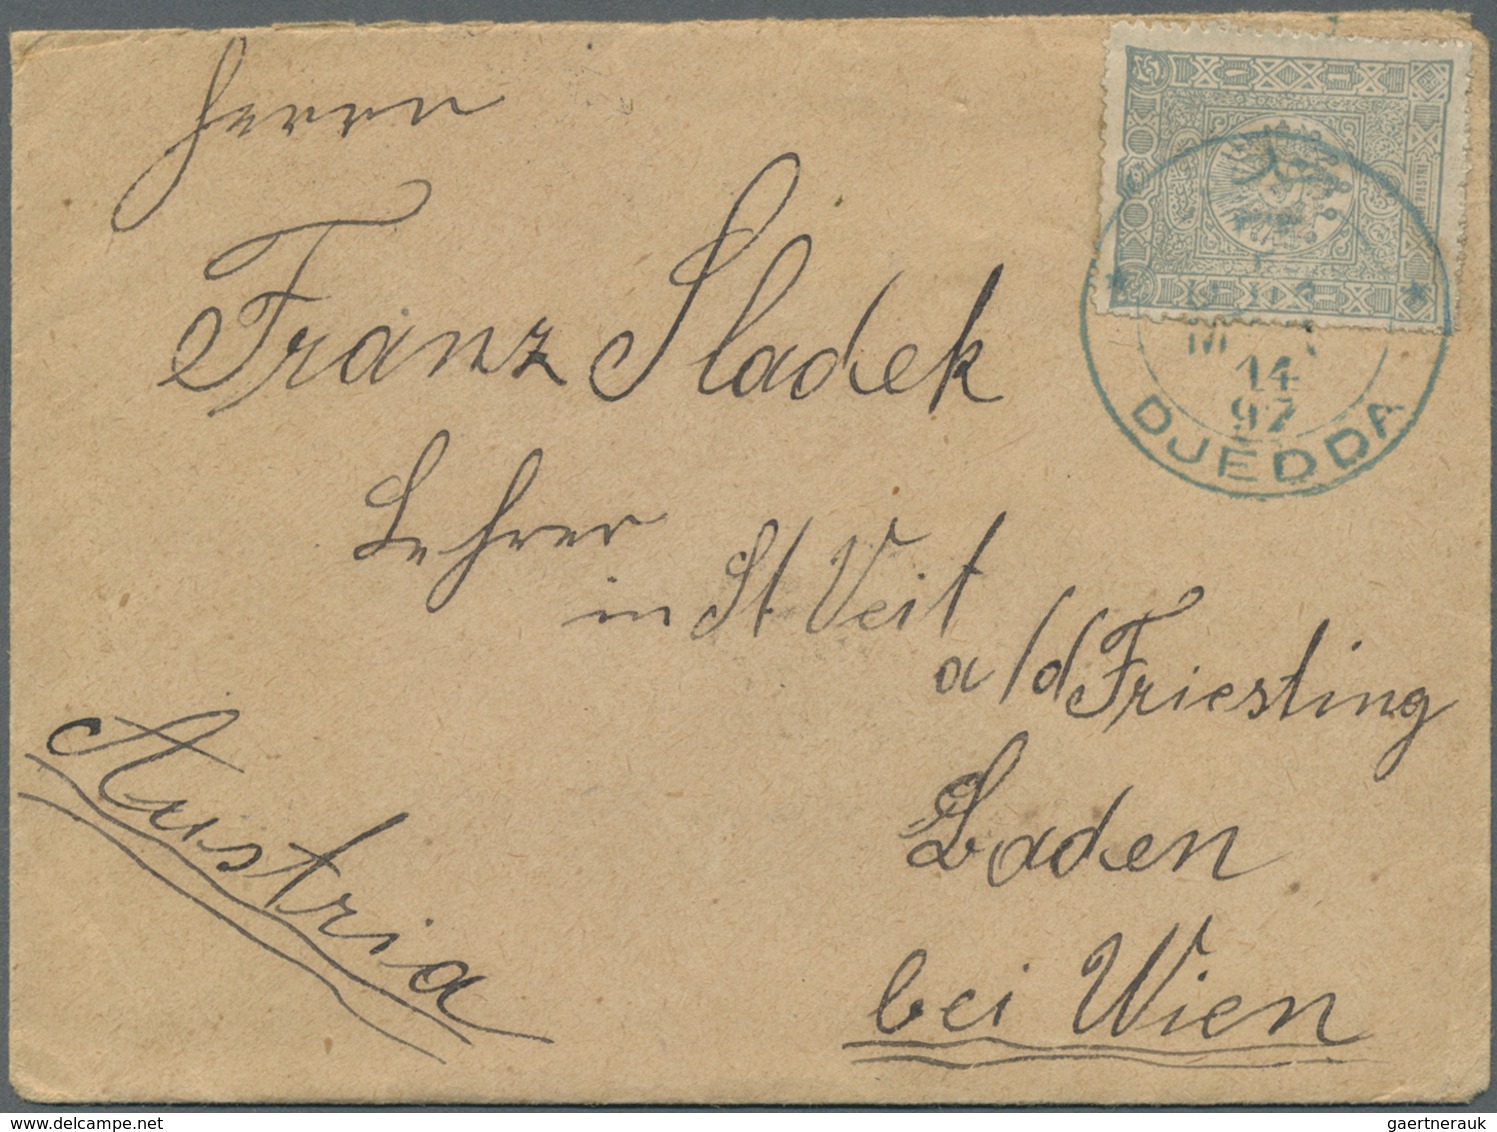 Herrn
Franz Sladek
Lehrer
in St Veit
a/d Triesting
Baden
bei Wien
Austria
14
97
DJEDDA
PIASTRE
delcampe.net
gaertnerauk